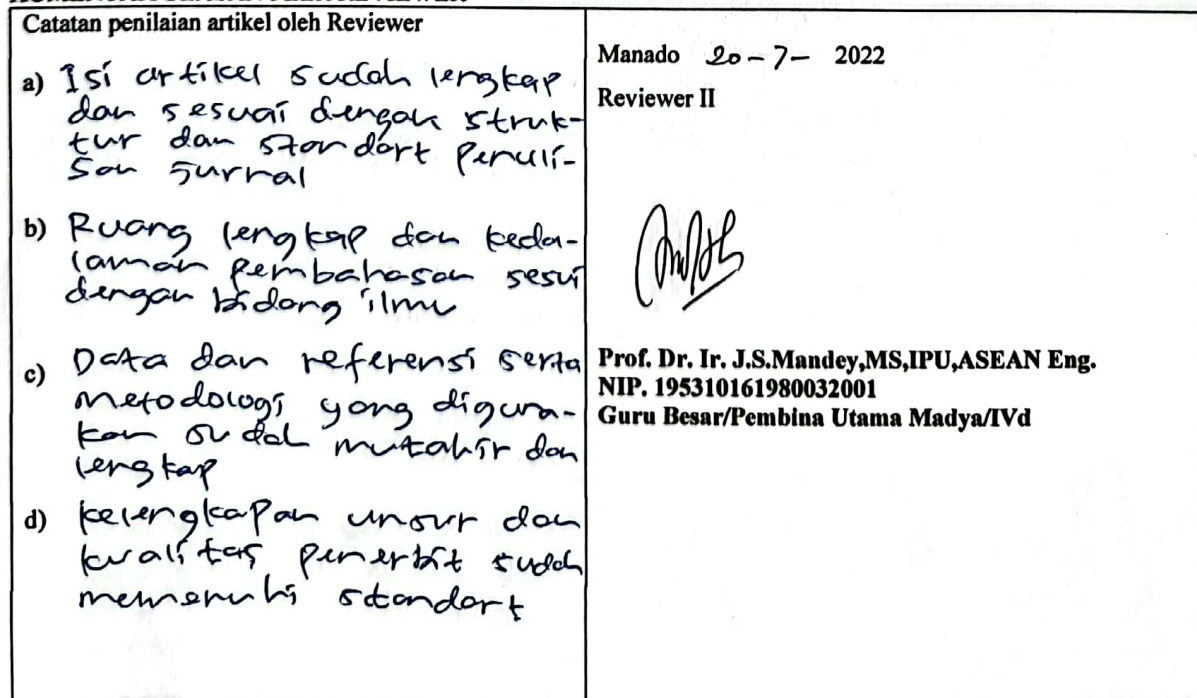 Catatan penilaian artikel oleh Reviewer
a) Isi artikel sudah lengkap
dan sesuai dengan struk-
tur dan standart penuli-
san jurnal
b) Ruang lengkap dan keda-
laman pembahasan sesui
dengan bidang ilmu
c) Data dan referensi serta
metodologi yang diguna-
kan sudah mutahir dan
lengkap
d) kelengkapan unsur dan
kualitas penerbit sudah
memenuhi standart
Manado 20-7- 2022
Reviewer II
Prof. Dr. Ir. J.S.Mandey,MS,IPU,ASEAN Eng.
NIP. 195310161980032001
Guru Besar/Pembina Utama Madya/IVd